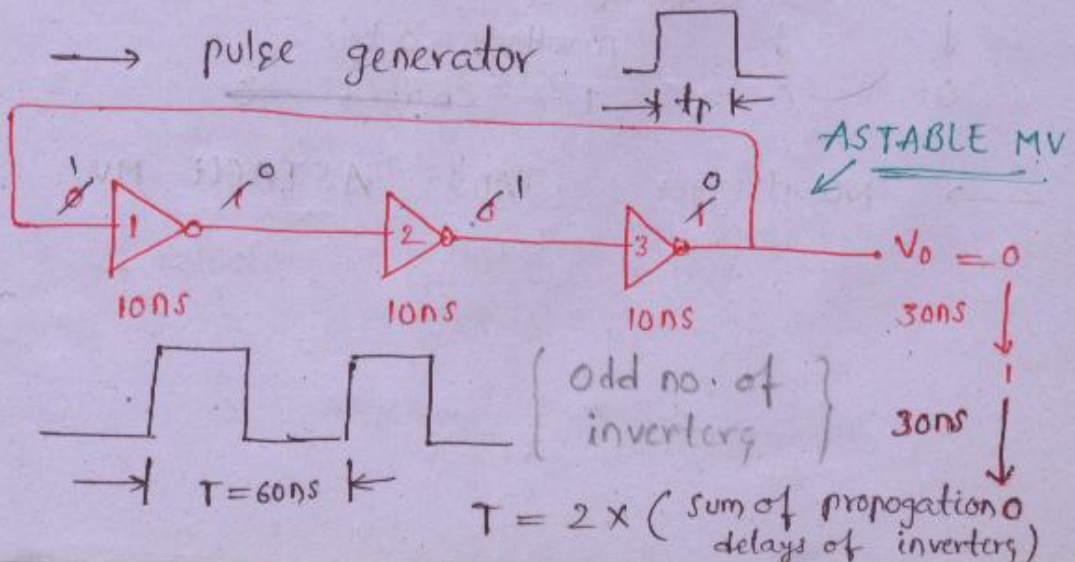 → pulse generator
tp
ASTABLE MV
1 0̸ 1 1̸ 0 2 0̸ 1 3 1̸ 0 V0 = 0
10ns 10ns 10ns 30ns
1
{ Odd no. of
inverters }
30ns
T = 60ns
0
T = 2 × ( sum of propogation
delays of inverters )